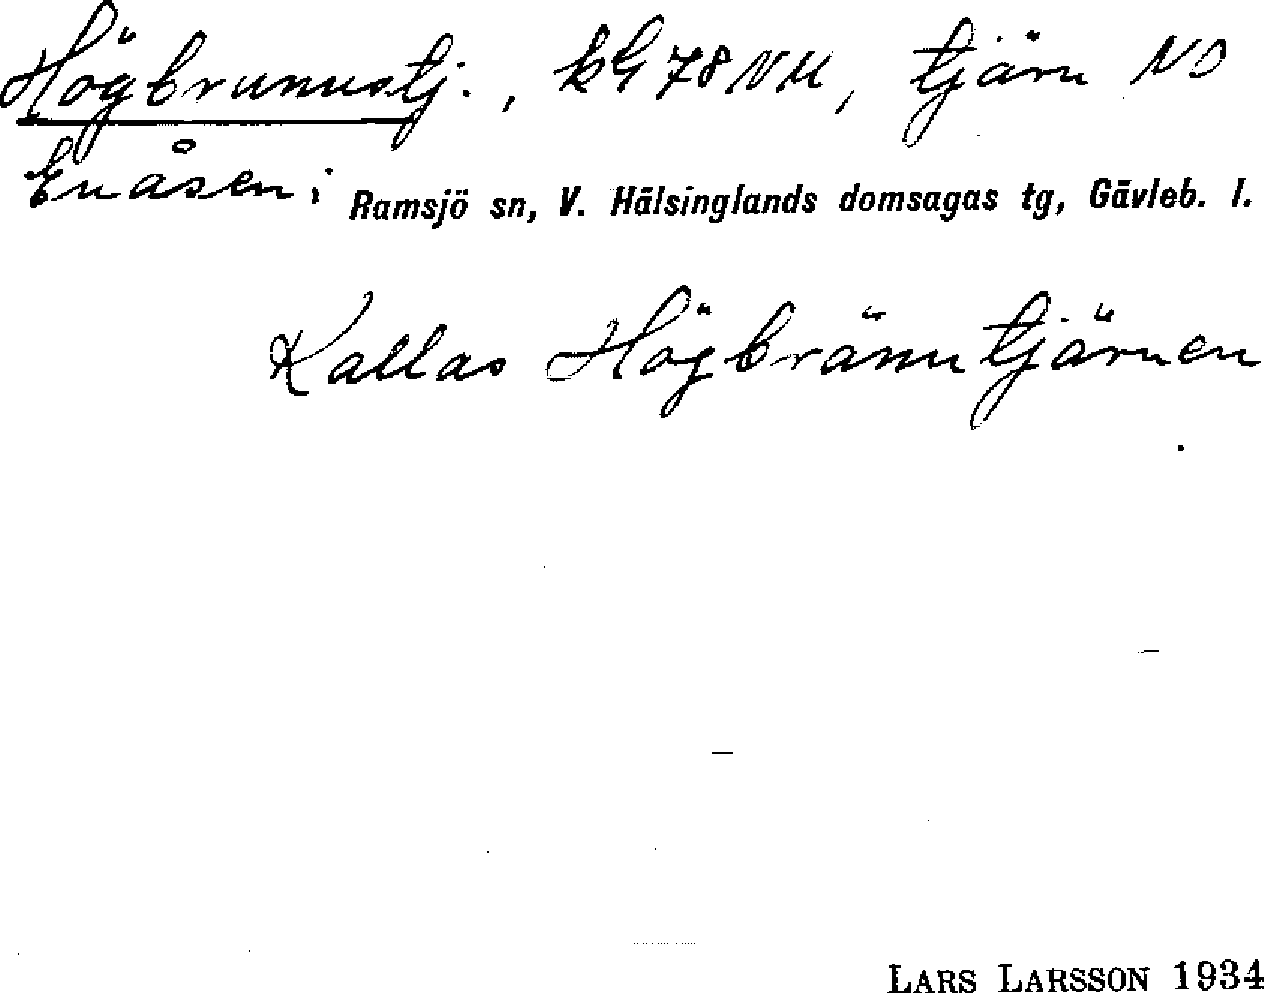 Högbrunnstj., kG 78 NM, tjärn NO
Enåsen i Ramsjö sn, V. Hälsinglands domsagas tg, Gävleb. l.
Kallas Högbränntjärnen
LARS LARSSON 1934